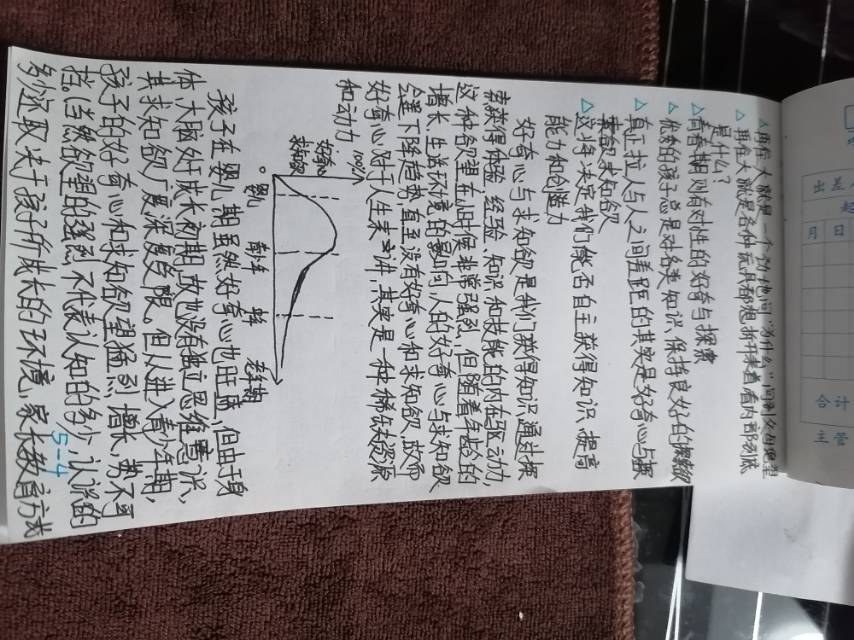 △ 再在大就是一个劲地问"为什么"
是什么?
△ 再在大就是各种玩具都想拆开来看看内部
△ 青春期则有对性的好奇与探索
△ 优秀的孩子总是对各类知识保持良好的探
△ 真正拉人与人之间差距的其实是好奇心与探
索欲求知欲
△ 这将决定我们能否自主获得知识、提高
能力和创造力
好奇心与求知欲是我们获得知识通过探
索获得体验、经验、知识和技能的内在驱动力,
这种欲望在小时候非常强烈,但随着年龄的
增长、生活环境的影响,人的好奇心与求知欲
会呈下降趋势,直至没有好奇心和求知欲,故而
好奇心对于人生来讲,其实是一种稀缺资源
和动力
100%
好奇心
求知欲
0
婴儿
青少年
中年
老年期
孩子在婴儿期虽然好奇心也旺盛,但由于身
体、大脑处于成长初期,故也没有独立思维意识,
其求知欲广度、深度受限。但从进入青少年期,
孩子的好奇心和求知欲望猛烈增长,势不可
挡。(当然欲望的强烈不代表认知的多少,认识的
多少还取决于孩子所成长的环境、家长教育方式
5-4
出差人
月
日
合计
主管